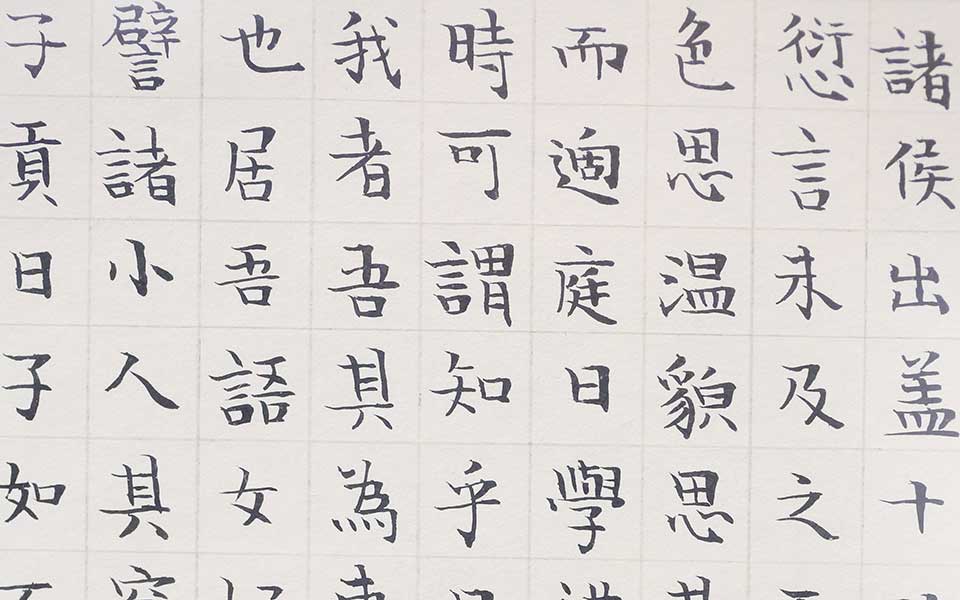 諸侯出盖十
愆言未及之
色思温貌思
而過庭曰學
時可謂知乎
我者吾其為
也居吾語女
譬諸小人其
子貢曰子如